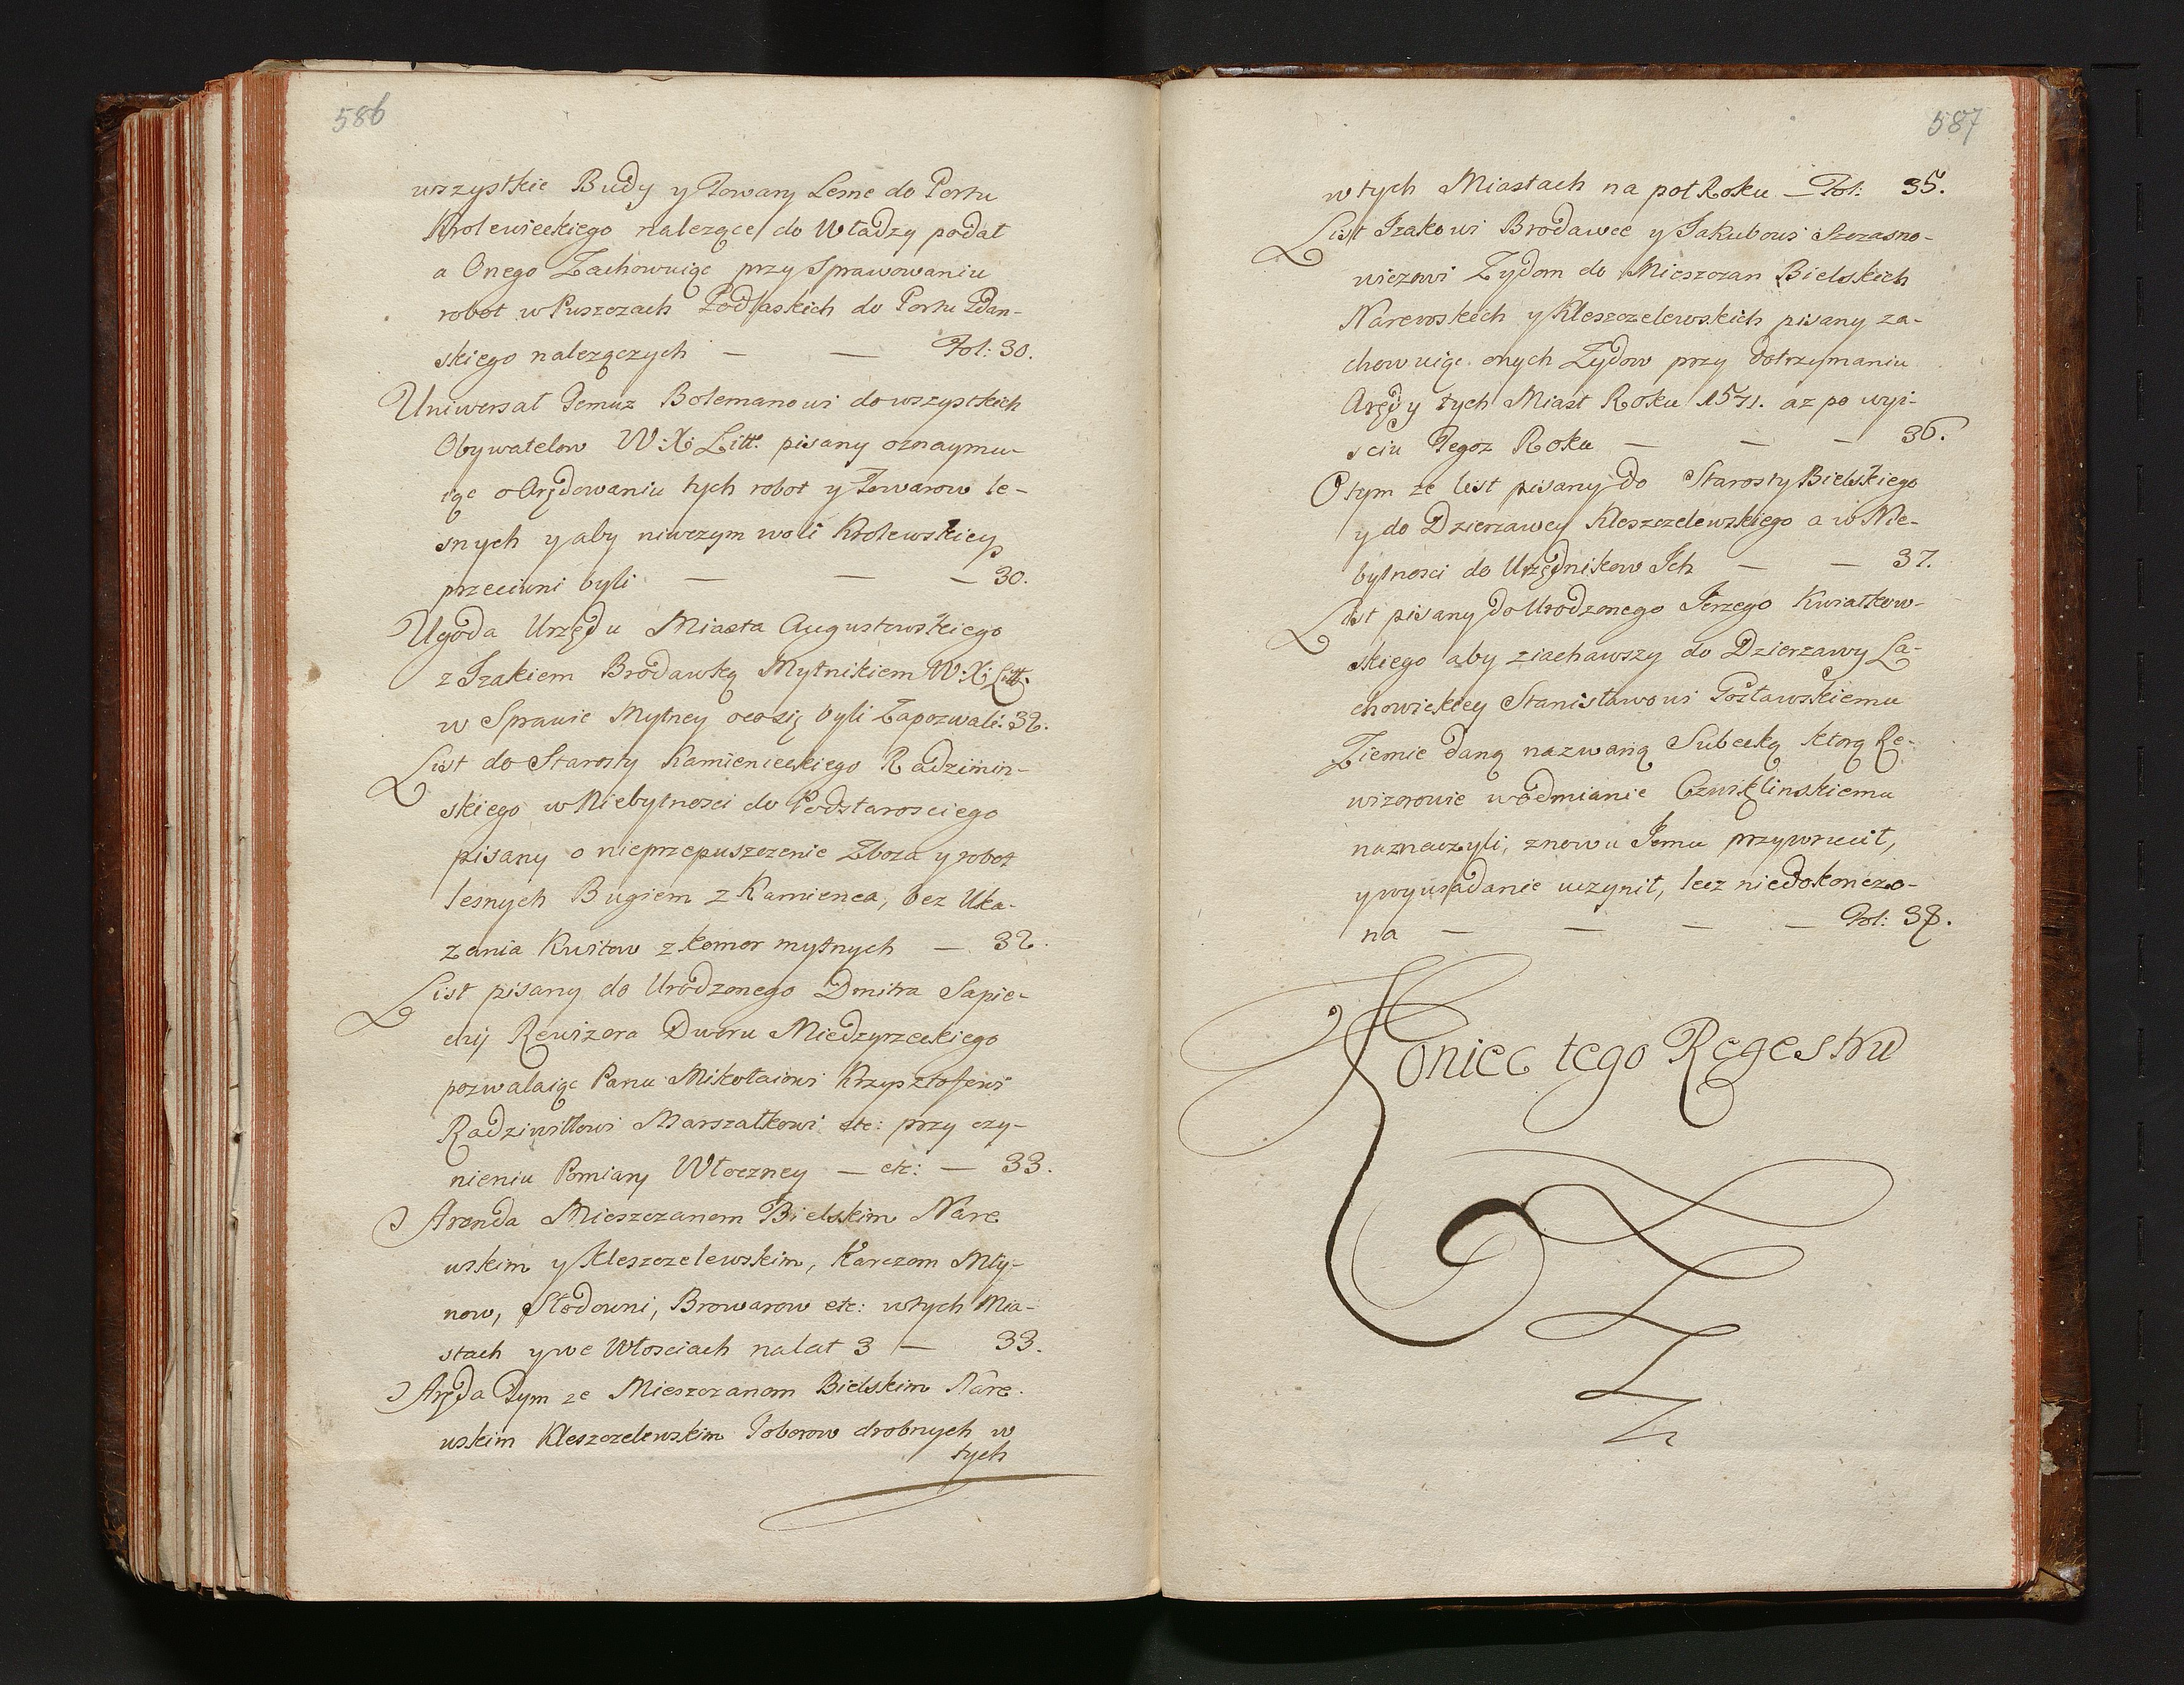 586
wszystkie Budy y Towary Lesne do Portu
Krolewieckiego nalezące do Władzy podał
a Onego Zachowuiąc przy Sprawowaniu
robot w Puszczach Podlaskich do Portu Gdan-
skiego nalezączych — — Fol: 30.
Uniwersał Temuz Bolemanowi do wszystkich
Obywatelow W: X: Litt. pisany oznaymu-
iąc o Arędowaniu tych robot y Towarow le-
snych y aby niwczym woli Krolewskiey
przeciwni byli — — — 30.
Ugoda Urzędu Miasta Augustowskiego
z Izakiem Brodawką Mytnikiem W: X: Litt:
w Sprawie Mytney oco się byli Zapozwali. 32.
List do Starosty Kamienieckiego Radzimin-
skiego w Niebytnosci do Podstarosciego
pisany o nieprzepuszczenie Zboza y robot
lesnych Bugiem z Kamienca, bez Uka-
zania Kwitow z komor mytnych — 32.
List pisany do Urodzonego Dmitra Sapie-
chy Rewizora Dworu Miedzyrzeckiego
pozwalaiąc Panu Mikołaiowi Krzysztofowi
Radziwiłłowi Marszałkowi etc: przy czy-
nieniu Pomiary Włoczney — etc: — 33.
Arenda Mieszczanom Bielskim Nare
wskim y Kleszczelewskim, Karczom Mły-
now, Słodowni, Browarow etc: w tych Mia-
stach y we Włosciach na lat 3 — 33.
Aręda Tym ze Mieszczanom Bielskim Nare-
wskim Kleszczelewskim Poborow drobnych w
tych
587
w tych Miastach na poł Roku — Fol: 35.
List Izakowi Brodawce y Jakubowi Szczasno-
wiczowi Zydom do Mieszczan Bielskich
Narewskich y Kleszczelewskich pisany za-
chowuiąc onych Zydow przy dotrzymaniu
Arędy tych Miast Roku 1571. az po wyi-
sciu Tegoz Roku — — — 36.
O tym ze list pisany do Starosty Bielskiego
y do Dzierzawcy Kleszczelewskiego a w Nie-
bytnosci do Urzędnikow Ich — — 37.
List pisany do Urodzonego Jerzego Kwiatkow-
skiego aby ziachawszy do Dzierzawy La-
chowickiey Stanisławowi Posławskiemu
Ziemie daną nazwaną Subecką ktorą Re-
wizorowie w odmianie Czwiklinskiemu
naznaczyli, znowu Jemu przywrucił,
y wywiadanie uczynił, lecz niedokonczo-
na — — — — Fol: 38.
Koniec tego Regestru